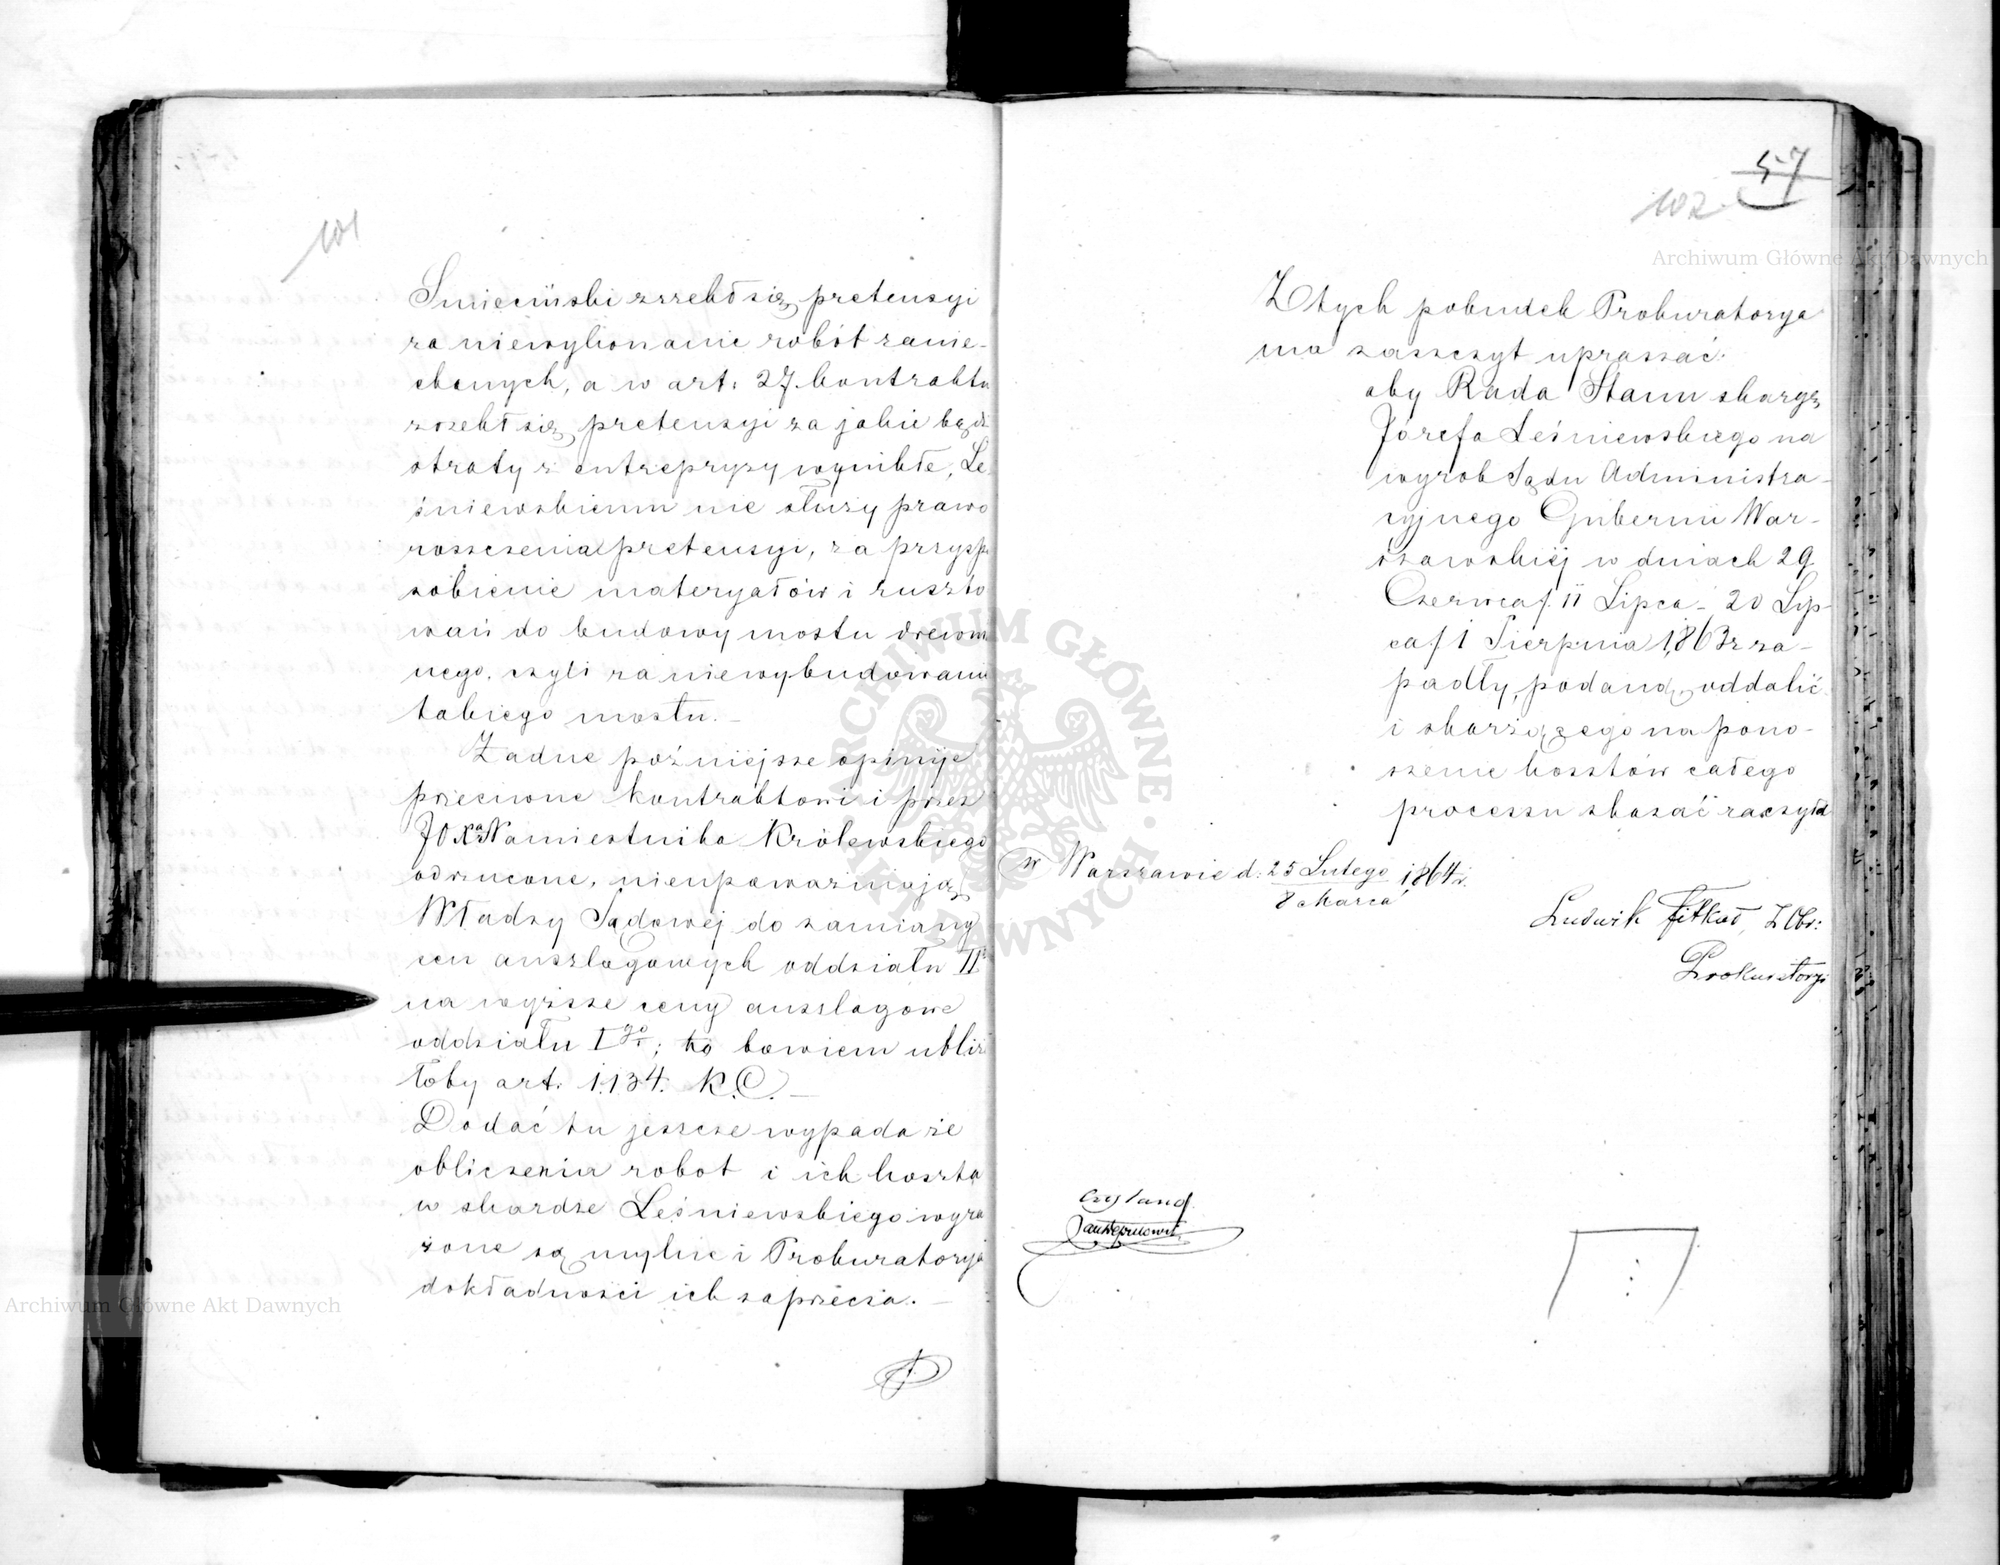 101
Smieciński zrzekł się pretensyi
za niewykonanie robót zanie-
chanych, a w art: 27. kontraktu
zrzekł się pretensyi za jakie bądź
straty z entrepryzy wynikłe, Le
śniewskiemu nie służy prawo
roszczenia pretensyi, za przyspo
sobienie materyałów i ruszto
wań do budowy mostu drewnia
nego, czyli za niewybudowanie
takiego mostu. –
Żadne poźniejsze opinije
przeciwne kontraktowi i przez
JO Xa Namiestnika Królewskiego
odrzucone, nieupoważniają
Władzy Sądowej do zamiany
cen anszlagowych oddziału II
na wyższe ceny anszlagowe
oddziału Igo; to bowiem ubliż
łoby art: 1134. K.C. –
Dodać tu jeszcze wypada że
obliczenia robot i ich koszta
w skardze Leśniewskiego wyra
żone są mylne i Prokuratorya
dokładności ich zaprzecza. –
57
102
Z tych pobudek Prokuratorya
ma zaszczyt upraszać:
aby Rada Stanu skargę
Józefa Leśniewskiego na
wyrok Sądu Administra-
cyjnego Gubernii War-
szawskiéj w dniach 29
Czerwca/11 Lipca – 20 Lip-
ca/1 Sierpnia 1863 r za-
padły, podaną, oddalić
i skarżącego na pono-
szenie kosztów całego
processu skazać raczyła
w Warszawie d: 25 Lutego / 8 Marca 1864 r.
Ludwik Z Obr:
Prokuratoryi
Archiwum Główne Akt Dawnych
Archiwum Główne Akt Dawnych
ARCHIWUM GŁÓWNE AKT DAWNYCH